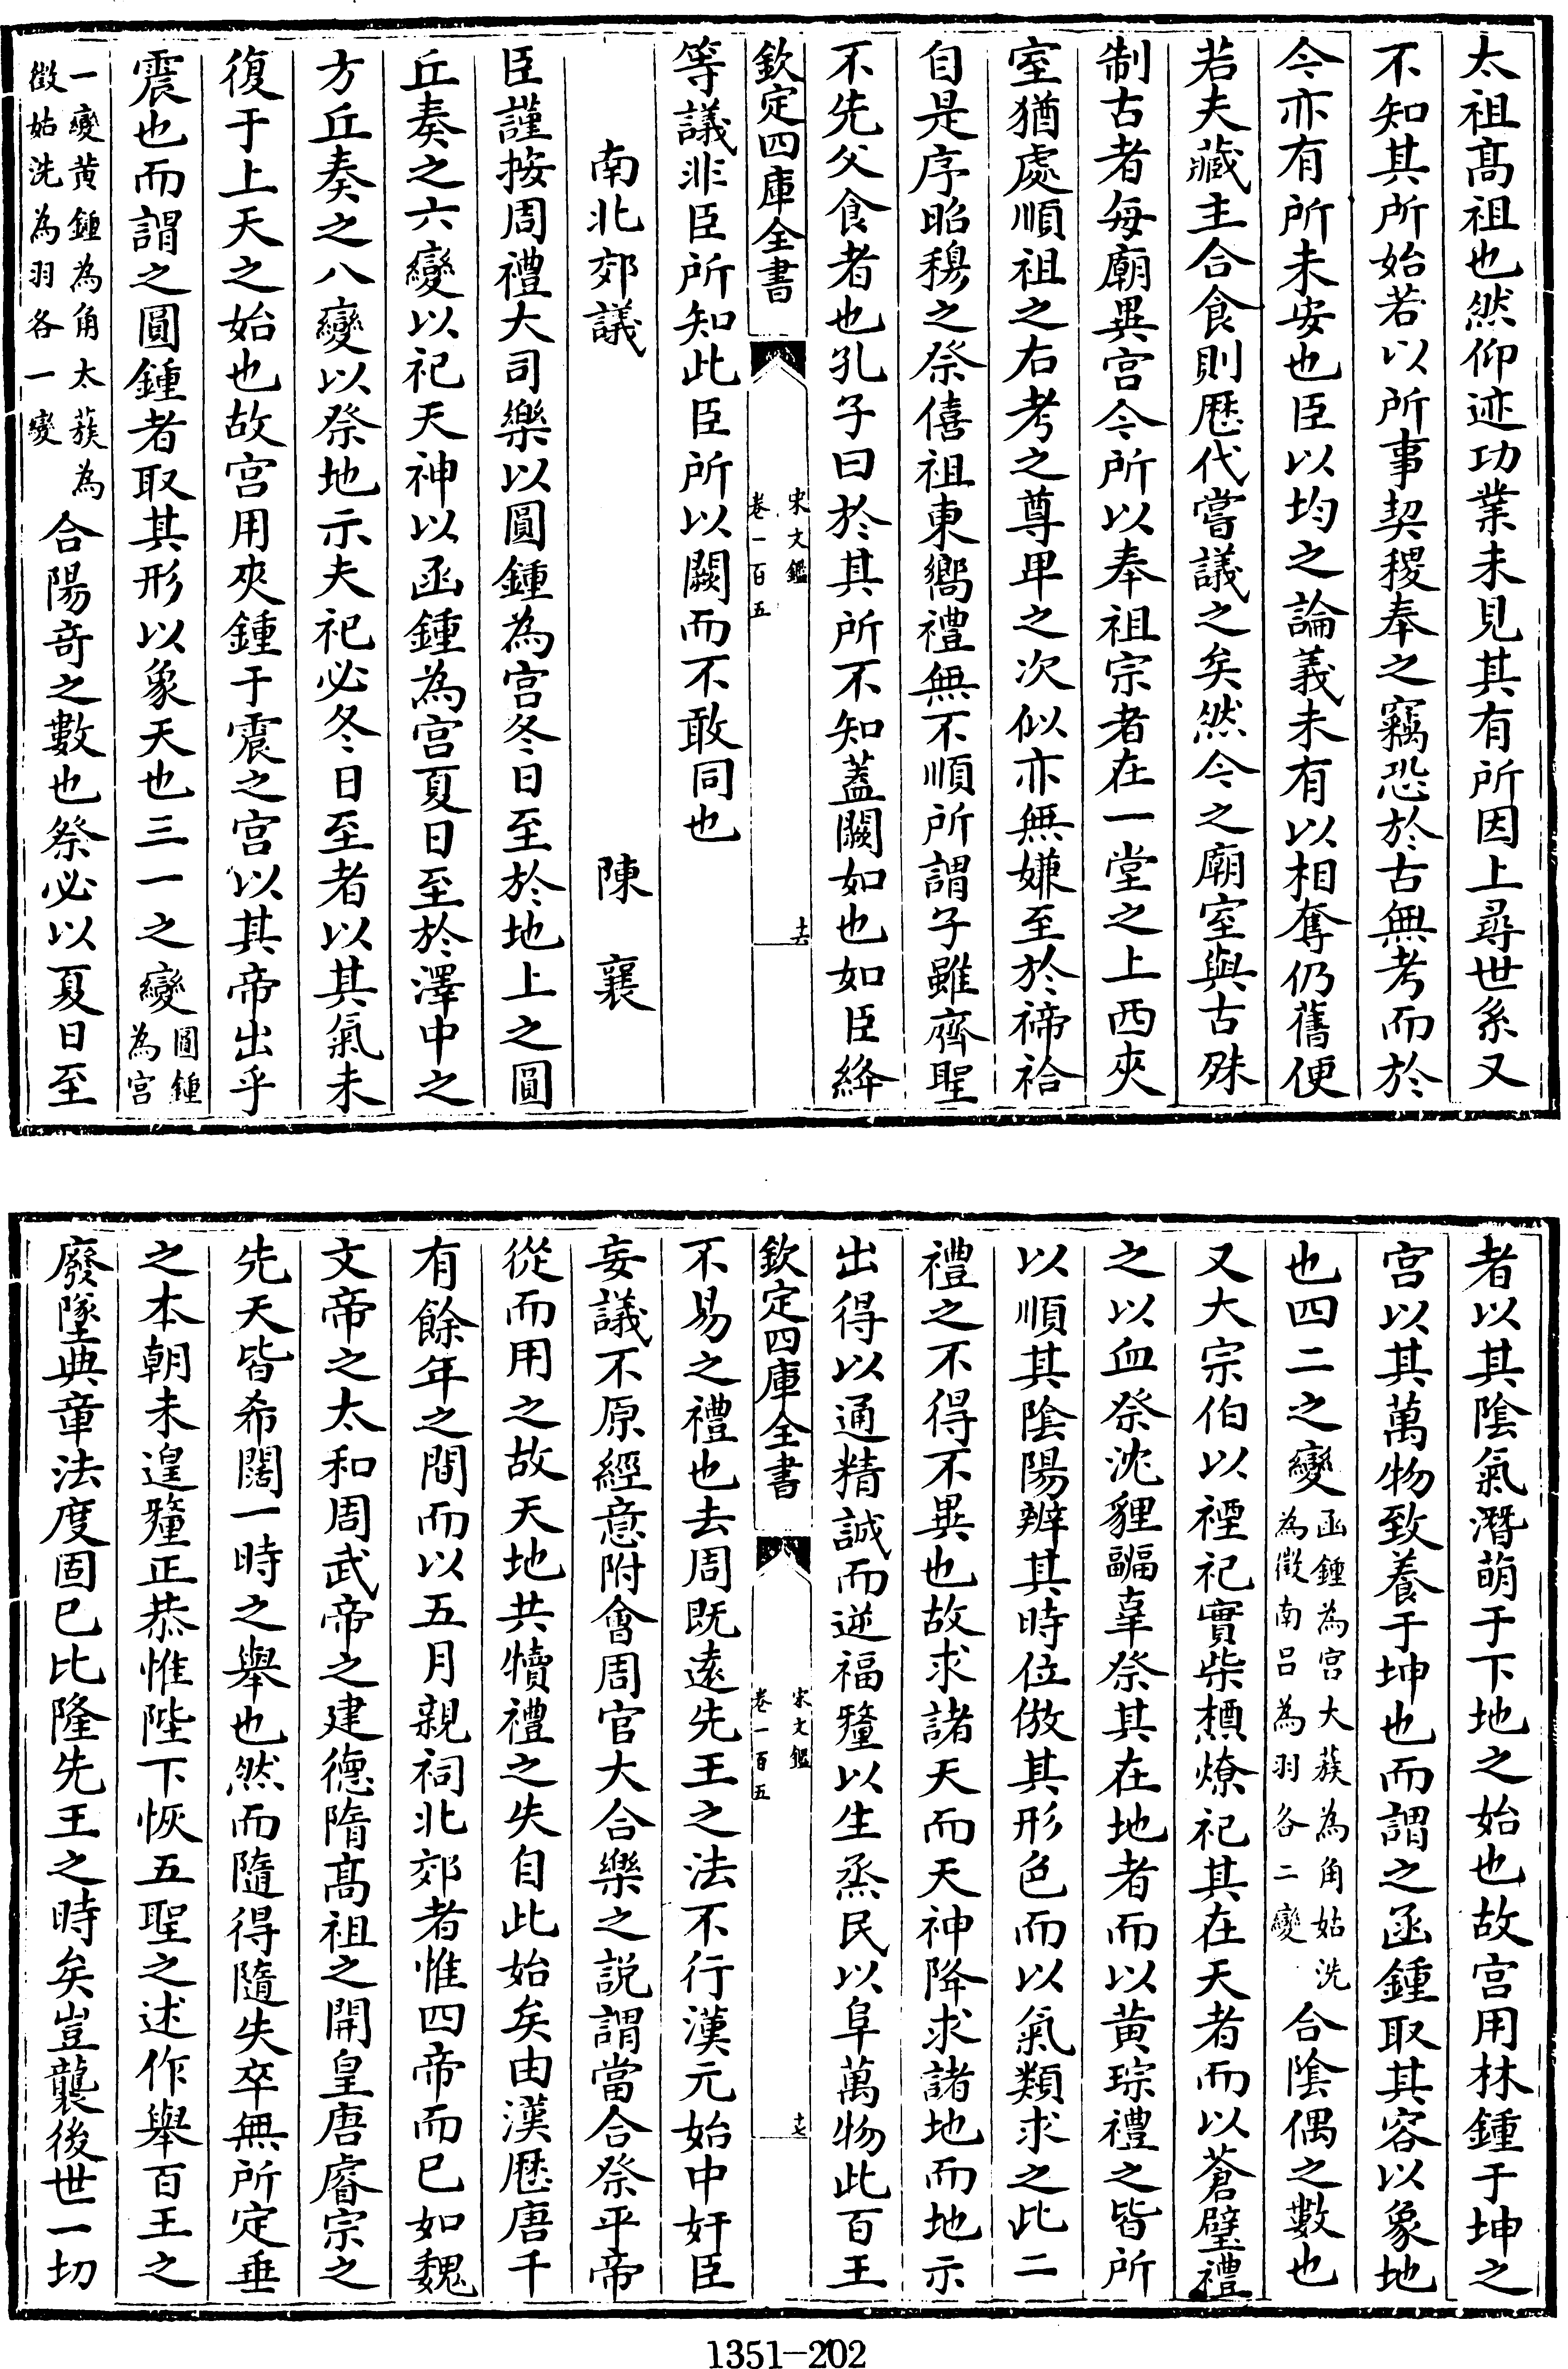 太祖髙祖也然仰迹功業未見其有所因上尋世系又
不知其所始若以所事契稷奉之竊恐於古無考而於
今亦有所未安也臣以均之論義未有以相奪仍舊便
若夫藏主合食則歴代嘗議之矣然今之廟室與古殊
制古者每廟異宫今所以奉祖宗者在一堂之上西夾
室猶處順祖之右考之尊卑之次似亦無嫌至於禘祫
自是序昭穆之祭僖祖東嚮禮無不順所謂子雖齊聖
不先父食者也孔子曰於其所不知蓋闕如也如臣絳
欽定四庫全書
宋文鑑
卷一百五
十六
等議非臣所知此臣所以闕而不敢同也
南北郊議 陳襄
臣謹按周禮大司樂以圓鍾為宫冬日至於地上之圓
丘奏之六變以祀天神以函鍾為宫夏日至於澤中之
方丘奏之八變以祭地示夫祀必冬日至者以其氣未
復于上天之始也故宫用夾鍾于震之宫以其帝出乎
震也而謂之圓鍾者取其形以象天也三一之變圓鍾為宫
一變黄鍾為角太蔟為徵姑洗為羽各一變合陽竒之數也祭必以夏日至
者以其隂氣潛萌于下地之始也故宫用林鍾于坤之
宫以其萬物致養于坤也而謂之函鍾取其容以象地
也四二之變函鍾為宫大蔟為角姑洗為徵南吕為羽各二變合隂偶之數也
又大宗伯以禋祀實柴槱燎祀其在天者而以蒼璧禮
之以血祭沈貍疈辜祭其在地者而以黄琮禮之皆所
以順其隂陽辨其時位倣其形色而以氣類求之此二
禮之不得不異也故求諸天而天神降求諸地而地示
出得以通精誠而逆福釐以生烝民以阜萬物此百王
欽定四庫全書
宋文鑑
卷一百五
十七
不易之禮也去周既逺先王之法不行漢元始中奸臣
妄議不原經意附會周官大合樂之説謂當合祭平帝
從而用之故天地共犢禮之失自此始矣由漢歴唐千
有餘年之間而以五月親祠北郊者惟四帝而已如魏
文帝之太和周武帝之建德隋髙祖之開皇唐睿宗之
先天皆希闊一時之舉也然而隨得隨失卒無所定垂
之本朝未遑釐正恭惟陛下恢五聖之述作舉百王之
廢墜典章法度固已比隆先王之時矣豈襲後世一切
1351-202